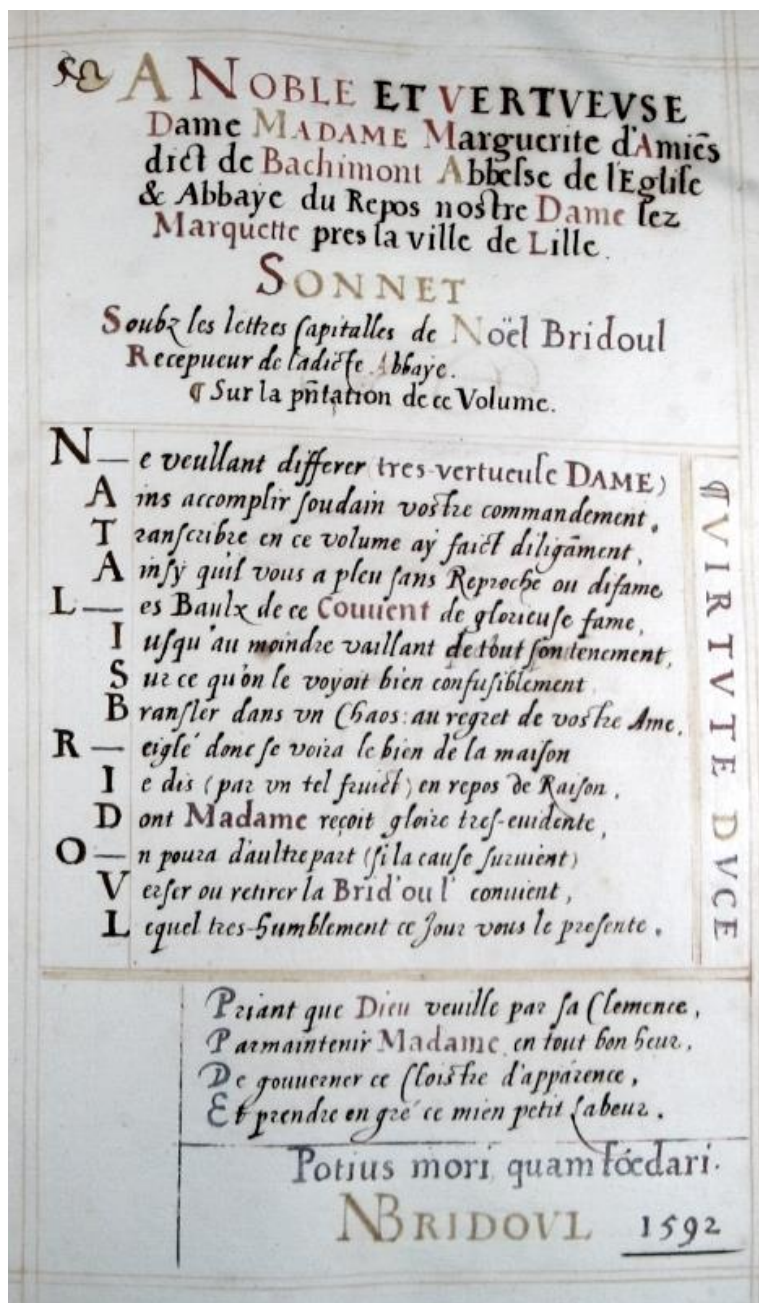 A NOBLE ET VERTVEVSE
Dame MADAME Marguerite d'Amiẽs
dict de Bachimont Abbesse de l'Eglise
& Abbaye du Repos nostre Dame lez
Marquette pres la ville de Lille.
SONNET
Soubz les lettres Capitalles de Noël Bridoul
Recepueur de ladicte Abbaye.
¶ Sur la pñtation de ce Volume.
N—e veullant differer (tres-vertueuse DAME)
Ains accomplir soudain vostre commandement,
Transcribre en ce volume ay faict diligãment,
Ainsy qu'il vous a pleu sans Reproche ou difame
L—es Baulx de ce Couuent de glorieuse fame,
Iusqu'au moindre vaillant de tout son tenement,
Sur ce qu'on le voyoit bien confusiblement
Bransler dans vn Chaos: au regret de vostre Ame.
R—eiglé donc se voira le bien de la maison
Ie dis (par vn tel fruict) en repos de Raison,
Dont Madame reçoit gloire tres-euidente,
O—n poura d'aultre part (si la cause suruient)
Verser ou retirer la Brid'ou l' conuient,
Lequel tres-humblement ce Jour vous le presente.
¶ VIRTVTE DVCE
Priant que Dieu veuille par sa Clemence,
Parmaintenir Madame en tout bon heur,
De gouuerner ce Cloistre d'apparence,
Et prendre en gré ce mien petit Labeur.
Potius mori quam fœdari.
NBRIDOVL 1592